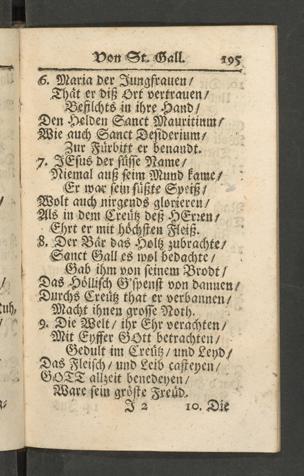 Von St. Gall. 195
6. Maria der Jungfrauen/
Thät er diß Ort vertrauen/
Befilchts in ihre Hand/
Den Helden Sanct Mauritium/
Wie auch Sanct Desiderium/
Zur Fürbitt er benandt.
7. JEsus der süsse Name/
Niemal auß seim Mund kame/
Er war sein süßte Speiß/
Wolt auch nirgends glorieren/
Als in dem Creütz deß HErren/
Ehrt er mit höchsten Fleiß.
8. Der Bär das Holtz zubrachte/
Sanct Gall es wol bedachte/
Gab ihm von seinem Brodt/
Das Höllisch G'spenst von dannen/
Durchs Creütz that er verbannen/
Macht ihnen grosse Noth.
9. Die Welt/ ihr Ehr verachten/
Mit Eyffer GOtt betrachten/
Gedult im Creütz/ und Leyd/
Das Fleisch/ und Leib casteyen/
GOTT allzeit benedeyen/
Ware sein gröste Freüd.
J 2 10. Die